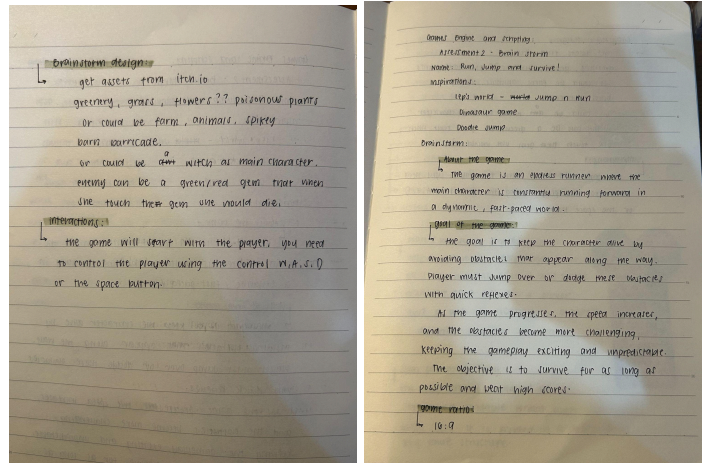 Brainstorm design:
get assets from itch.io
greenery, grass, flowers?? poisonous plants
or could be farm, animals, spikey
barn barricade.
or could be a witch as main character.
enemy can be a green/red gem that when
she touch the gem she would die.
interactions:
the game will start with the player, you need
to control the player using the control W.A.S.D
or the space button.
Games Engine and scripting:
Assessment 2 - Brain storm
Name: Run, Jump and survive!
Inspirations:
Lep's world - Jump n Run
Dinosaur game
Doodle Jump
Brainstorm:
About the game:
The game is an endless runner where the
main character is constantly running forward in
a dynamic, fast-paced world.
goal of the game:
the goal is to keep the character alive by
avoiding obstacles that appear along the way.
Player must jump over or dodge these obstacles
with quick reflexes.
As the game progresses, the speed increases,
and the obstacles become more challenging,
keeping the gameplay exciting and unpredictable.
The objective is to survive for as long as
possible and beat high scores.
game ratio:
16:9